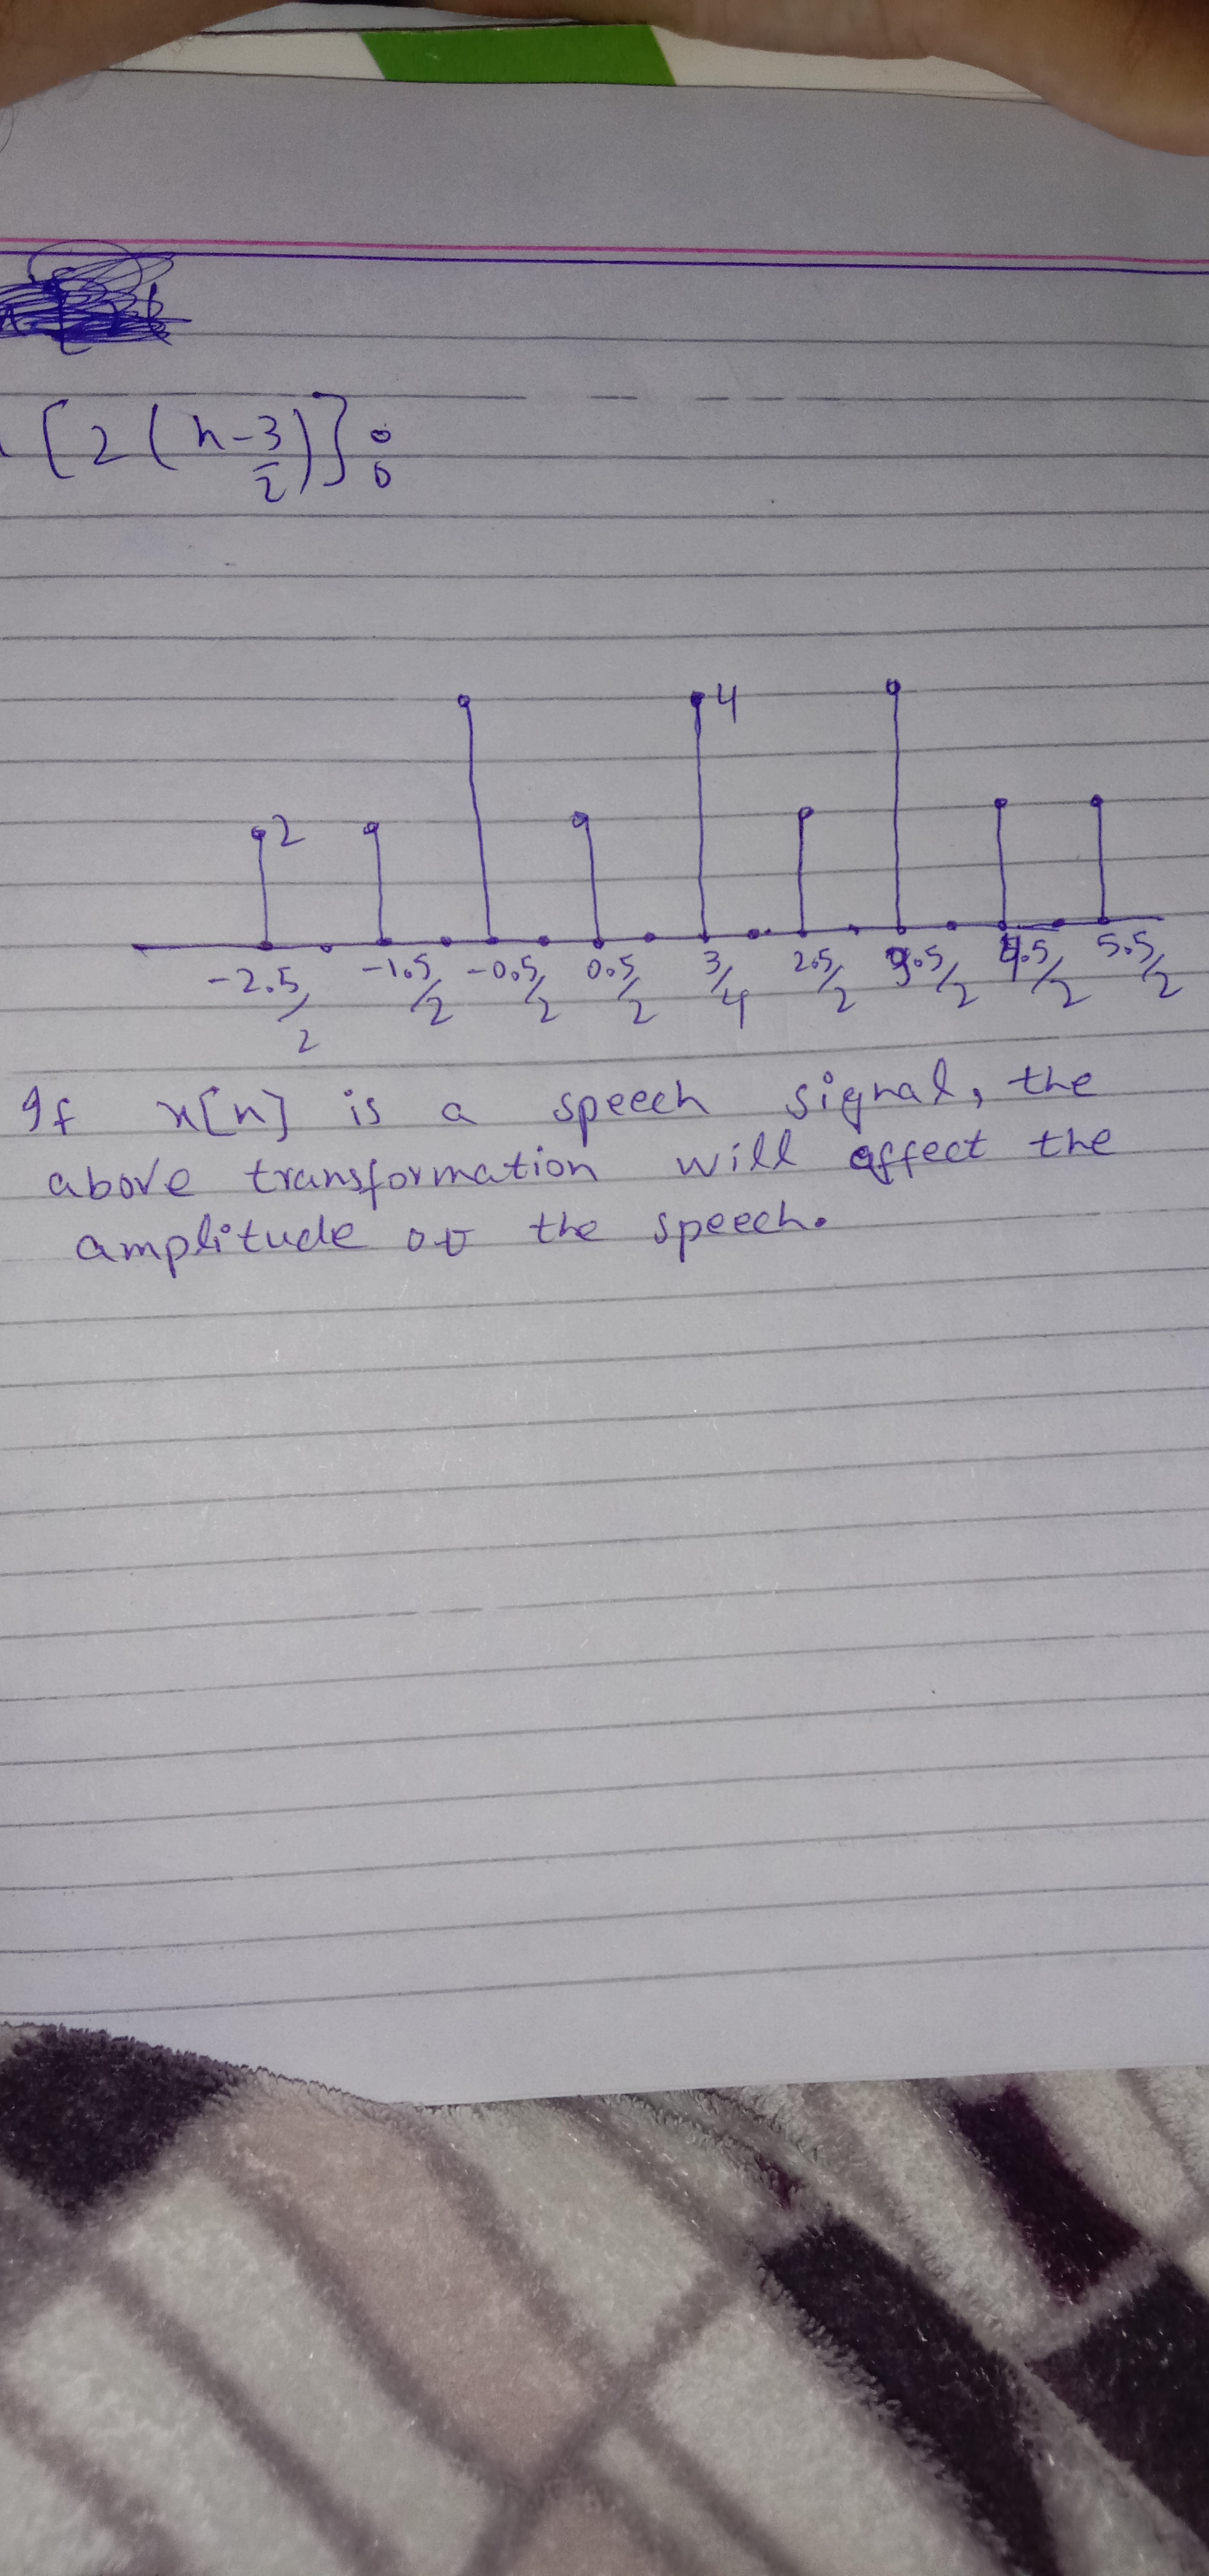 [2(n-3/2)]:
4
2
-2.5/2 -1.5/2 -0.5/2 0.5/2 3/4 2.5/2 3.5/2 4.5/2 5.5/2
If x[n] is a speech signal, the
above transformation will affect the
amplitude of the speech.